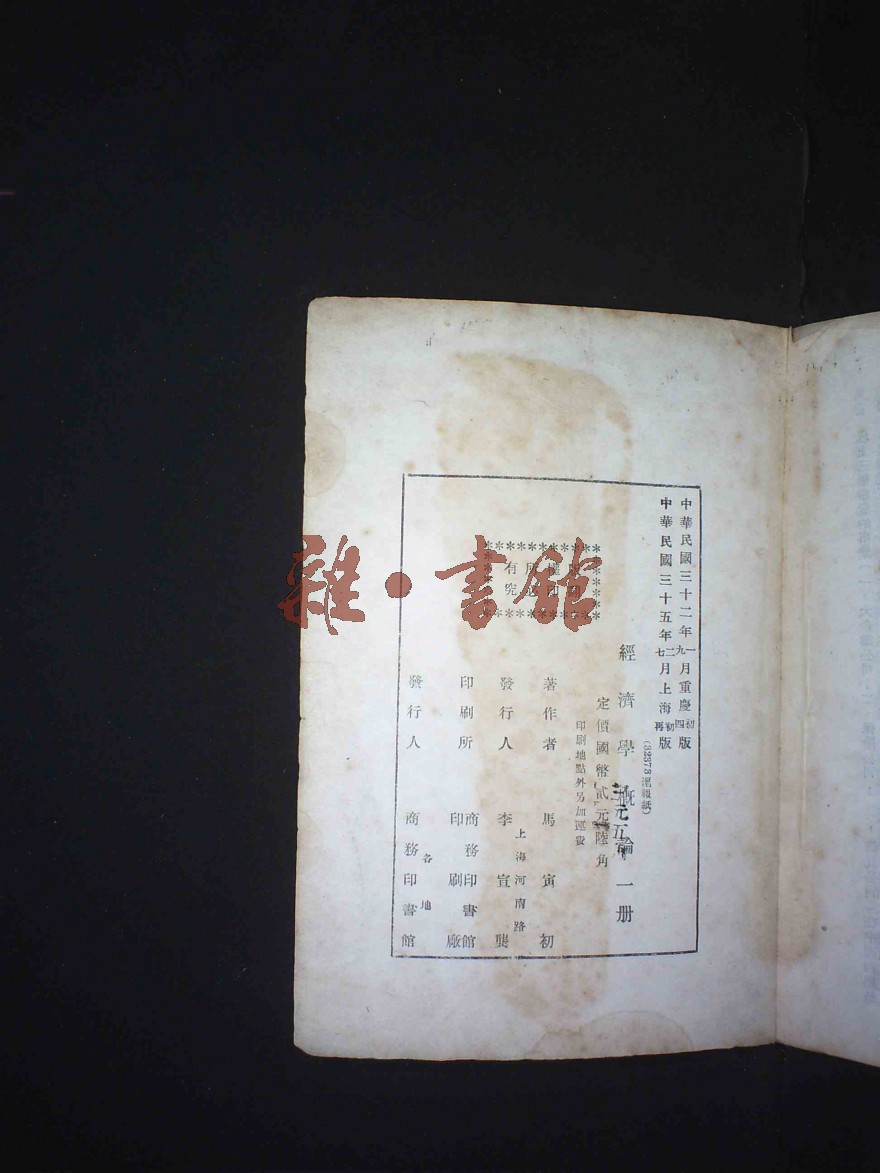 中華民國三十二年一月重慶初版
九月四版
中華民國三十五年二月上海初版
七月再版
(52378滬報紙)
經濟學概論一册
定價國幣貳元陸角
三元五
印刷地點外另加運費
有究
著作者 馬寅初
上海河南路
發行人 李宣龔
印刷所 商務印書館
印刷廠
各地
發行人 商務印書館
雜·書館